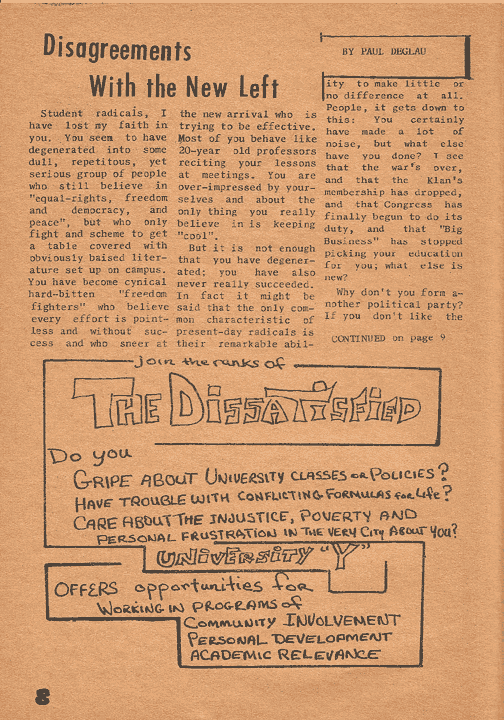 Disagreements
With the New Left
BY PAUL DEGLAU
Student radicals, I
have lost my faith in
you. You seem to have
degenerated into some
dull, repetitous, yet
serious group of people
who still believe in
"equal-rights, freedom
and democracy, and
peace", but who only
fight and scheme to get
a table covered with
obviously baised liter-
ature set up on campus.
You have become cynical
hard-bitten "freedom
fighters" who believe
every effort is point-
less and without suc-
cess and who sneer at
the new arrival who is
trying to be effective.
Most of you behave like
20-year old professors
reciting your lessons
at meetings. You are
over-impressed by your-
selves and about the
only thing you really
believe in is keeping
"cool".
But it is not enough
that you have degener-
ated; you have also
never really succeeded.
In fact it might be
said that the only com-
mon characteristic of
present-day radicals is
their remarkable abil-
ity to make little or
no difference at all.
People, it gets down to
this: You certainly
have made a lot of
noise, but what else
have you done? I see
that the war's over,
and that the Klan's
membership has dropped,
and that Congress has
finally begun to do its
duty, and that "Big
Business" has stopped
picking your education
for you; what else is
new?
Why don't you form a-
nother political party?
If you don't like the
CONTINUED on page 9
join the ranks of
THE DISSATISFIED
Do you
GRIPE ABOUT UNIVERSITY CLASSES or POLICIES?
HAVE TROUBLE WITH CONFLICTING FORMULAS for Life?
CARE ABOUT THE INJUSTICE, POVERTY AND
PERSONAL FRUSTRATION IN THE VERY CITY ABOUT You?
UNIVERSITY "Y"
OFFERS opportunities for
WORKING IN PROGRAMS of
COMMUNITY INVOLVEMENT
PERSONAL DEVELOPMENT
ACADEMIC RELEVANCE
8